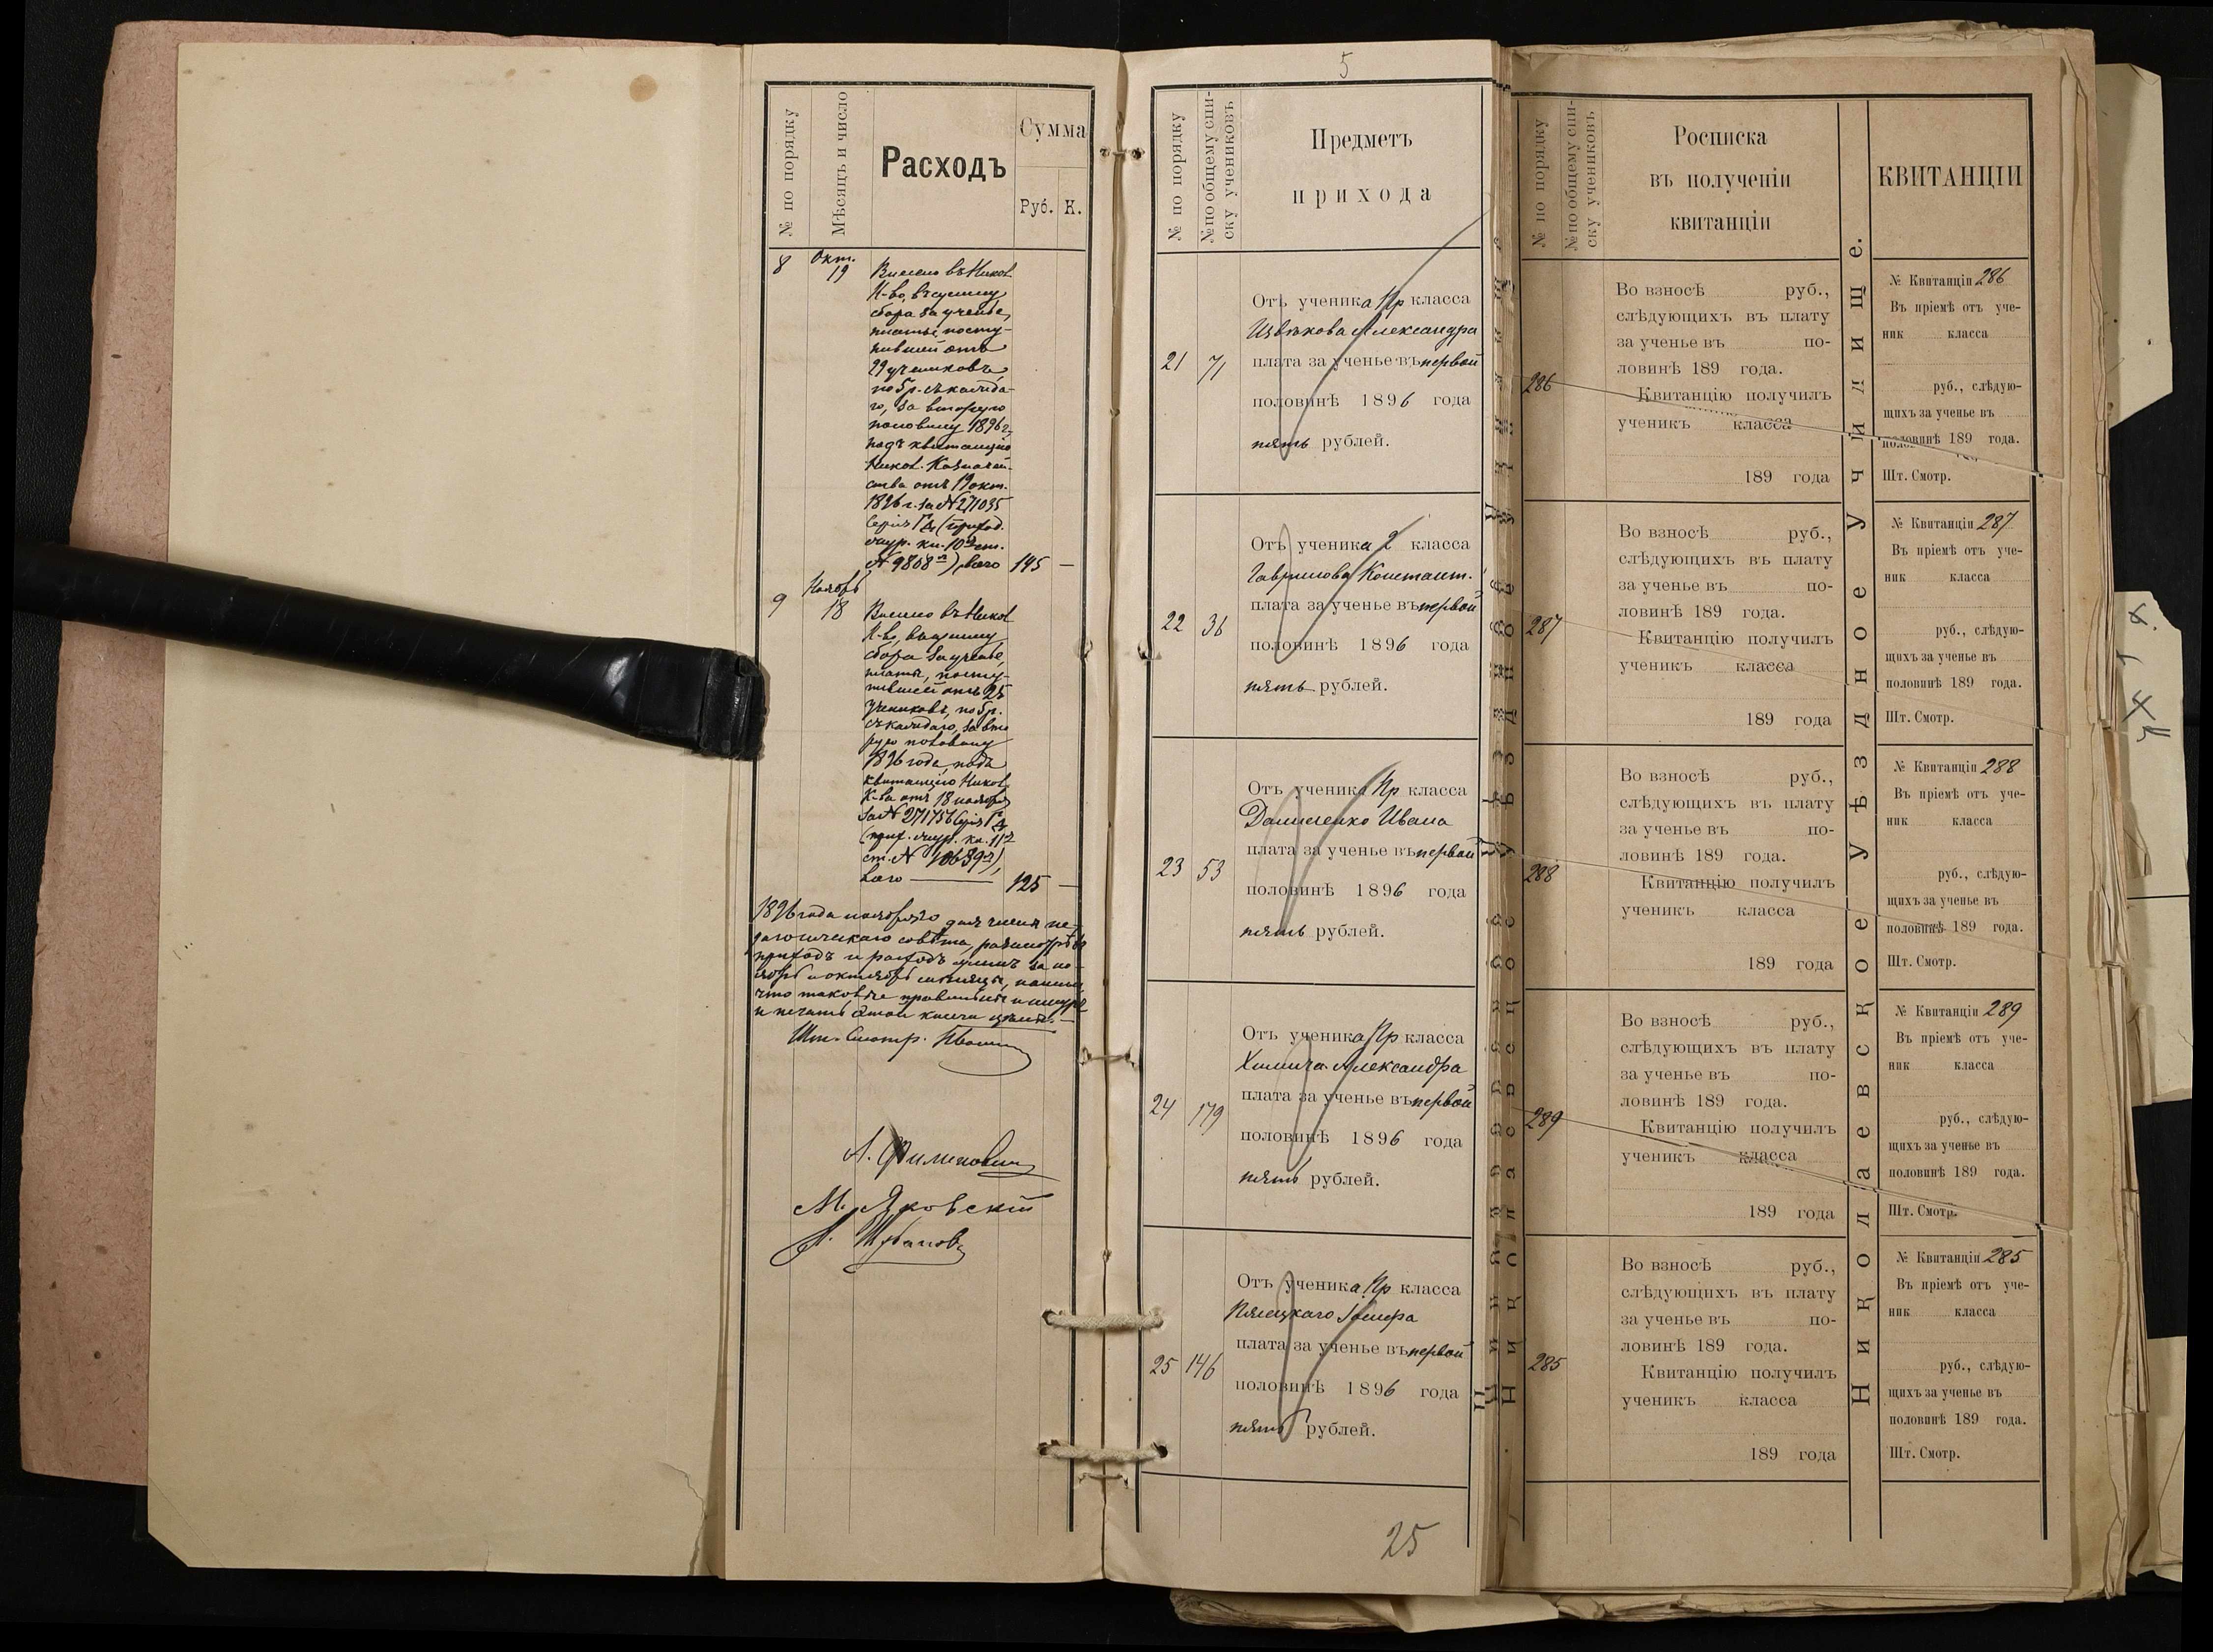 № по порядку
Мѣсяцъ и число
Расходъ
Сумма
Руб. К.
8
Окт.
19
Внесено въ Никол.
К-во, въ сумму
сбора за ученье,
платы посту-
пившей отъ
29 учениковъ,
по 5 р. съ каждо-
го, за вторую
половину 1896 г.
подъ квитанцію
Никол. Казначей-
ства отъ 19 окт.
1896 г. за № 271035
Серія
журн. кн. 10 ст.
№ 9808), всего 145 —
9
Ноябрь
18
Внесено въ Никол.
К-во, въ сумму
сбора за ученье,
платы, посту-
пившей отъ 25
учениковъ, по 5 р.
съ каждаго, за вто
рую половину
1896 года, подъ
квитанцію Никол.
К-ва отъ 18 ноября
за № 271756 Серія
журн. кн. 11
ст. № 10639),
всего — 125 —
1896 года ноября 20 дня члены пе-
дагогическаго совѣта, разсмотрѣвъ
приходъ и расходъ суммъ за но-
ябрь и октябрь мѣсяцы, нашли,
что таковые правильны и шнуръ
и печать этой книги цѣлы. —
Шт. Смотр.
А. Филипович
М. Яковскій
5
№ по порядку
№ по общему спи-
ску учениковъ
Предметъ
прихода
21
71
Отъ ученика Пр класса
Цвѣткова Александра
плата за ученье въ первой
половинѣ 1896 года
пять рублей.
22
36
Отъ ученика 2 класса
Гаврилова Констант.
плата за ученье въ первой
половинѣ 1896 года
пять рублей.
23
53
Отъ ученика Пр класса
Даниленко Ивана
плата за ученье въ первой
половинѣ 1896 года
пять рублей.
24
179
Отъ ученика Пр класса
Химича Александра
плата за ученье въ первой
половинѣ 1896 года
пять рублей.
25
146
Отъ ученика Пр класса
плата за ученье въ первой
половинѣ 1896 года
пять рублей.
25
№ по порядку
№ по общему спи-
ску учениковъ
Росписка
въ полученіи
квитанціи
286
Во взносѣ руб.,
слѣдующихъ въ плату
за ученье въ по-
ловинѣ 189 года.
Квитанцію получилъ
ученикъ класса
189 года
287
Во взносѣ руб.,
слѣдующихъ въ плату
за ученье въ по-
ловинѣ 189 года.
Квитанцію получилъ
ученикъ класса
189 года
288
Во взносѣ руб.,
слѣдующихъ въ плату
за ученье въ по-
ловинѣ 189 года.
Квитанцію получилъ
ученикъ класса
189 года
289
Во взносѣ руб.,
слѣдующихъ въ плату
за ученье въ по-
ловинѣ 189 года.
Квитанцію получилъ
ученикъ класса
189 года
285
Во взносѣ руб.,
слѣдующихъ въ плату
за ученье въ по-
ловинѣ 189 года.
Квитанцію получилъ
ученикъ класса
189 года
Николаевское Уѣздное Училище.
КВИТАНЦІИ
№ Квитанціи 286
Въ пріемѣ отъ уче-
ник класса
руб., слѣдую-
щихъ за ученье въ
половинѣ 189 года.
Шт. Смотр.
№ Квитанціи 287
Въ пріемѣ отъ уче-
ник класса
руб., слѣдую-
щихъ за ученье въ
половинѣ 189 года.
Шт. Смотр.
№ Квитанціи 288
Въ пріемѣ отъ уче-
ник класса
руб., слѣдую-
щихъ за ученье въ
половинѣ 189 года.
Шт. Смотр.
№ Квитанціи 289
Въ пріемѣ отъ уче-
ник класса
руб., слѣдую-
щихъ за ученье въ
половинѣ 189 года.
Шт. Смотр.
№ Квитанціи 285
Въ пріемѣ отъ уче-
ник класса
руб., слѣдую-
щихъ за ученье въ
половинѣ 189 года.
Шт. Смотр.